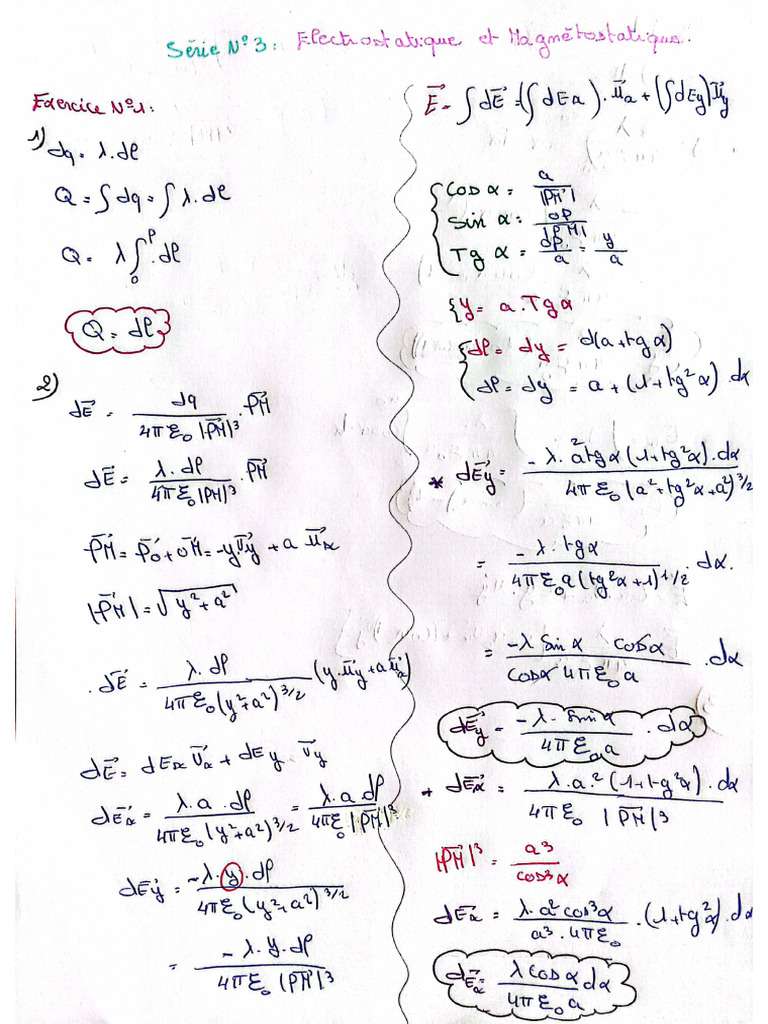 Série N°3: Electrostatique et Magnétostatique.
Exercice N°1:
1) dq = λ.dl
Q = ∫dq = ∫λ.dl
Q = λ∫₀ᴾ.dl
Q = dl
2) dE⃗ = dq / 4πε₀|PM⃗|³ . PM⃗
dE⃗ = λ.dl / 4πε₀|PM⃗|³ . PM⃗
PM⃗ = PO⃗ + OM⃗ = -yU⃗y + a U⃗x
|PM⃗| = √(y² + a²)
dE⃗ = λ.dl / 4πε₀(y²+a²)^3/2 (y.U⃗y + a U⃗x)
dE⃗ = dEx U⃗x + dEy U⃗y
dE⃗x = λ.a.dl / 4πε₀(y²+a²)^3/2 = λ.a.dl / 4πε₀|PM⃗|³
dE⃗y = -λ.y.dl / 4πε₀(y²+a²)^3/2
= -λ.y.dl / 4πε₀|PM⃗|³
E⃗ = ∫dE⃗ = (∫dEx).U⃗x + (∫dEy)U⃗y
Cos α = a / |PM⃗|
Sin α = OP / |PM|
Tg α = dP / a = y / a
{y = a.Tgα
{dl = dy = d(a+tgα)
dl = dy = a+(1+tg²α).dα
* dE⃗y = -λ.a²tgα(1+tg²α).dα / 4πε₀(a²+tg²α+a²)^3/2
= -λ.tgα / 4πε₀a(tg²α+1)^1/2 . dα.
= -λ Sinα cosα / cosα 4πε₀a . dα
dE⃗y = -λ.Sinα / 4πε₀a . dα
* dE⃗x = λ.a.²(1+tg²α).dα / 4πε₀ |PM⃗|³
|PM⃗|³ = a³ / cos³α
dE⃗x = λ.a²cos³α / a³.4πε₀ . (1+tg²α).dα
dE⃗x = λcosα dα / 4πε₀a